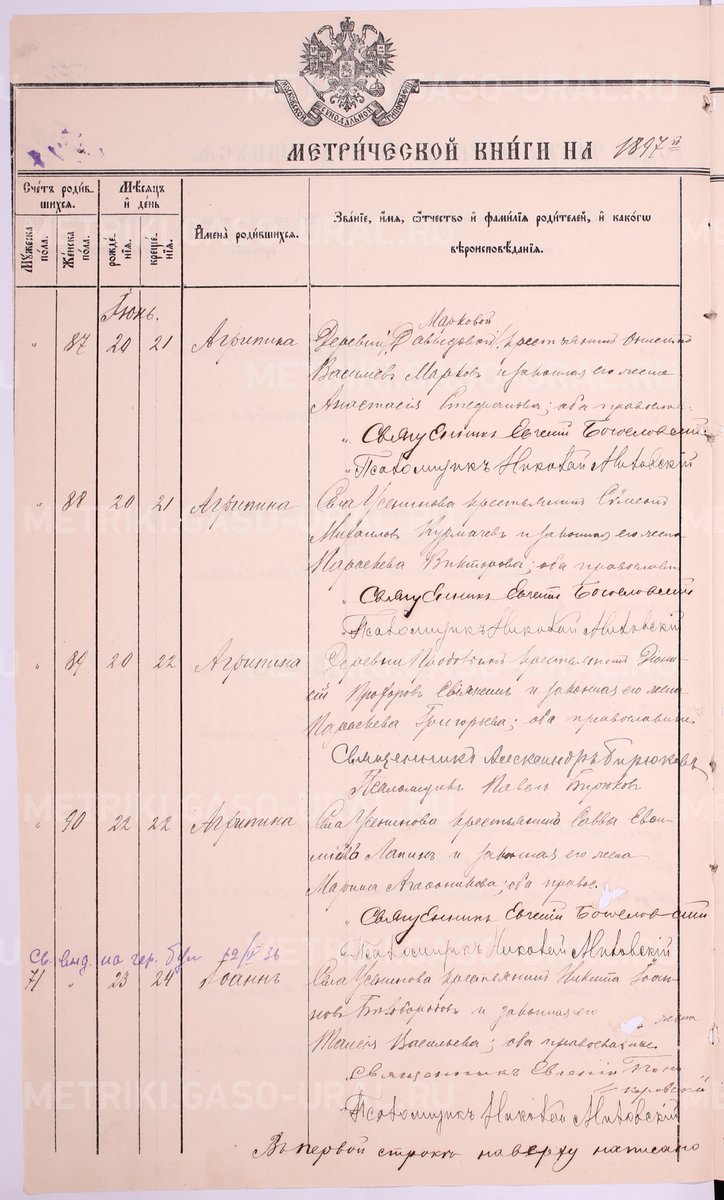 МОСКОВСКОЙ СУНОДАЛЬНОЙ ТИПОГРАФІИ
МЕТРИ́ЧЕСКОЙ КНИ́ГИ НА 1897 го
Счетъ роди́вшихся.
Мужеска пола.
Женска пола.
Мѣсяцъ и день
рожденія.
крещенія.
Имена̀ роди́вшихся.
Зва́ніе, и́мя, ѻ́тчество и фами́лія роди́телей, и како́гѡ
вѣроисповѣ́данія.
Іюнь.
Марковой
" 87 20 21 Агрипина Деревни Давыдовой, крестьянинъ
Василіевъ Марковъ и законная его жена
Анастасія Стефанова; оба православ.
" Священникъ Евгеній Богословскій
" Псаломщикъ Николай Митовскій
" 88 20 21 Агрипина Села Усенинова крестьянинъ Сумеонъ
Михаиловъ Курмачевъ и законная его жена
Параскева Викторова; оба православн
" Священникъ Евгеній Богословскій
Псаломщикъ Николай Митовскій
" 89 20 22 Агрипина Деревни крестьянинъ Діони-
сій Прохоровъ и законная его жена
Параскева Григорьева; оба православные
Священникъ Александръ Бирюковъ
Псаломщикъ Павелъ Бирюковъ
" 90 22 22 Агрипина Села Усенинова крестьянинъ Савва Евѳи-
міевъ Лапинъ и законная его жена
Марина Агаѳоникова; оба правос.
" Священникъ Евгеній Богословскій
Псаломщикъ Николай Митовскій
Св. выд. на гер. бул 36
71 " 23 24 Іоаннъ Села Усенинова крестьянинъ Никита Іоан-
новъ Бѣлобородовъ и законная его жена
Таисія Васильева; оба православные
Священникъ Евгеній
Псаломщикъ Николай Митовскій
Въ первой строкѣ наверху написано
METRIKI-GASO-URAL.RU